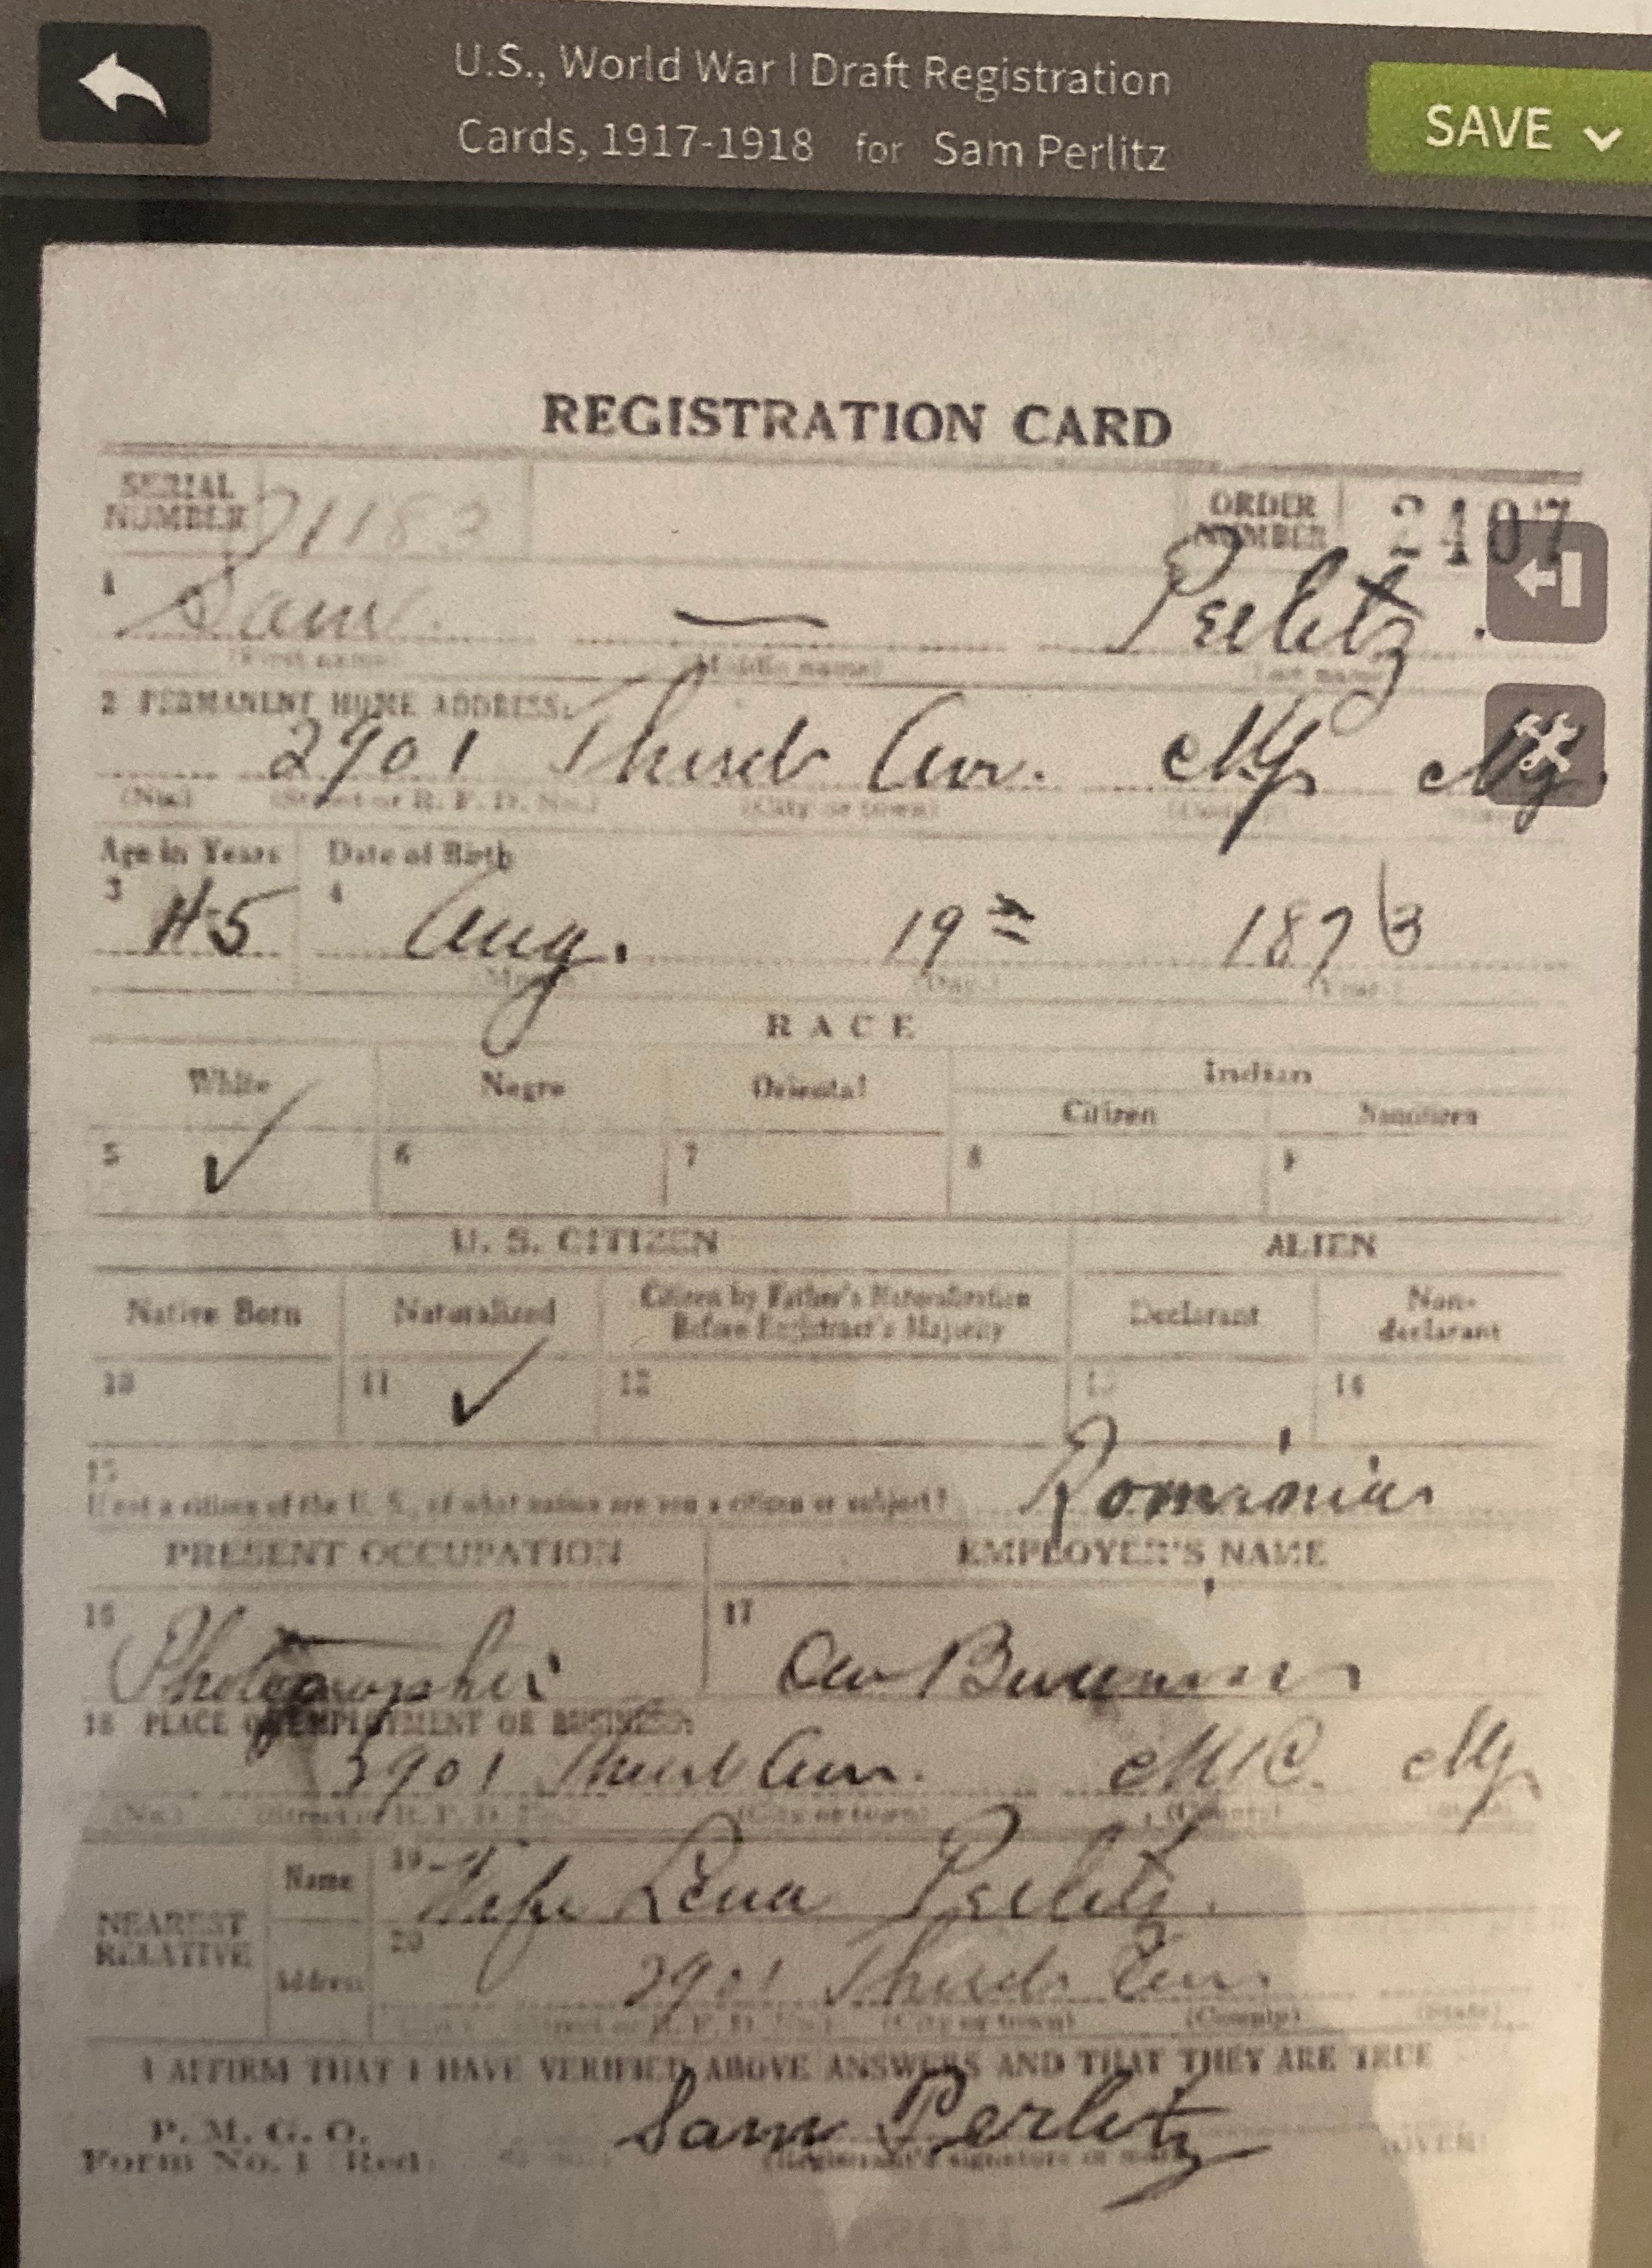 U.S., World War I Draft Registration
Cards, 1917-1918 for Sam Perlitz
SAVE
REGISTRATION CARD
SERIAL NUMBER 1183 ORDER NUMBER 2407
1 Sam — Perlitz
(First name) (Middle name) (Last name)
2 PERMANENT HOME ADDRESS:
2901 Third Ave. NY NY
(No.) (Street or R. F. D. No.) (City or town) (County) (State)
Age in Years Date of Birth
3 45 4 Aug. 19th 1873
(Month) (Day.) (Year.)
RACE
White Negro Oriental Indian
Citizen Noncitizen
5 ✓ 6 7 8 9
U. S. CITIZEN ALIEN
Native Born Naturalized Citizen by Father's Naturalization Before Registrant's Majority Declarant Non-declarant
10 11 ✓ 12 13 14
15
If not a citizen of the U. S., of what nation are you a citizen or subject?
PRESENT OCCUPATION EMPLOYER'S NAME
16 Photographer 17 Own Business
18 PLACE OF EMPLOYMENT OR BUSINESS:
Third Ave. NY
(No.) (Street or R. F. D. No.) (City or town) (County) (State)
NEAREST RELATIVE
Name 19 Wife Lena Perlitz.
Address 20 2901 Third Ave.
(No.) (Street or R. F. D. No.) (City or town) (County) (State)
I AFFIRM THAT I HAVE VERIFIED ABOVE ANSWERS AND THAT THEY ARE TRUE
P. M. G. O.
Form No. 1 (Red) Sam Perlitz
(Registrant's signature or mark) (OVER)